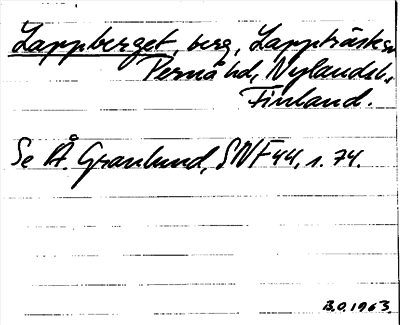 Lappberget, berg, Lappträsk sn
Pernå hd, Nylands l.,
Finland.
Se Å. Granlund, SNF 44, s. 74.
B.O. 1963